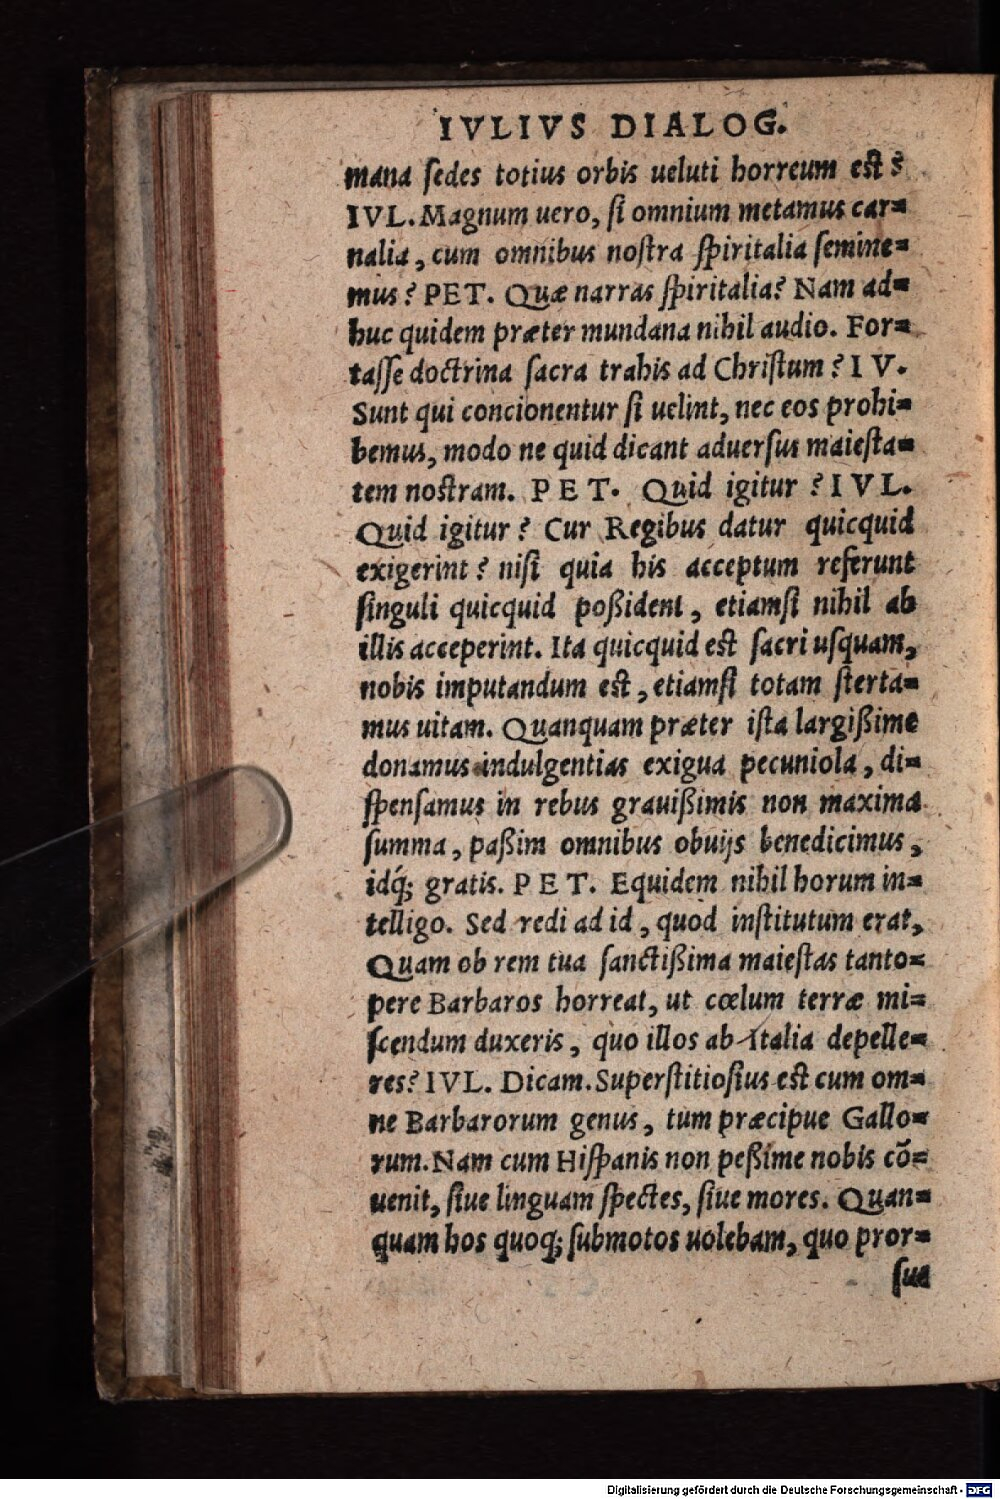 IVLIVS DIALOG.
mana ſedes totius orbis ueluti horreum eſt?
IVL. Magnum uero, ſi omnium metamus car=
nalia, cum omnibus noſtra ſpiritalia ſemine=
mus? PET. Quæ narras ſpiritalia? Nam ad=
huc quidem præter mundana nihil audio. For=
taſſe doctrina ſacra trahis ad Chriſtum? I V.
Sunt qui concionentur ſi uelint, nec eos prohi=
bemus, modo ne quid dicant aduerſus maieſta=
tem noſtram. P E T. Quid igitur? I V L.
Quid igitur? Cur Regibus datur quicquid
exigerint? niſi quia his acceptum referunt
ſinguli quicquid poßident, etiamſi nihil ab
illis acceperint. Ita quicquid eſt ſacri uſquam,
nobis imputandum eſt, etiamſi totam ſterta=
mus uitam. Quanquam præter iſta largißime
donamus indulgentias exigua pecuniola, di=
ſpenſamus in rebus grauißimis non maxima
ſumma, paßim omnibus obuijs benedicimus,
idq́; gratis. P E T. Equidem nihil horum in=
telligo. Sed redi ad id, quod inſtitutum erat,
Quam ob rem tua ſanctißima maieſtas tanto=
pere Barbaros horreat, ut cœlum terræ mi=
ſcendum duxeris, quo illos ab Italia depelle=
res? IVL. Dicam. Superſtitioſius eſt cum om=
ne Barbarorum genus, tum præcipue Gallo=
rum. Nam cum Hiſpanis non peßime nobis cõ=
uenit, ſiue linguam ſpectes, ſiue mores. Quan=
quam hos quoq; ſubmotos uolebam, quo pror=
ſus
Digitalisierung gefördert durch die Deutsche Forschungsgemeinschaft - DFG